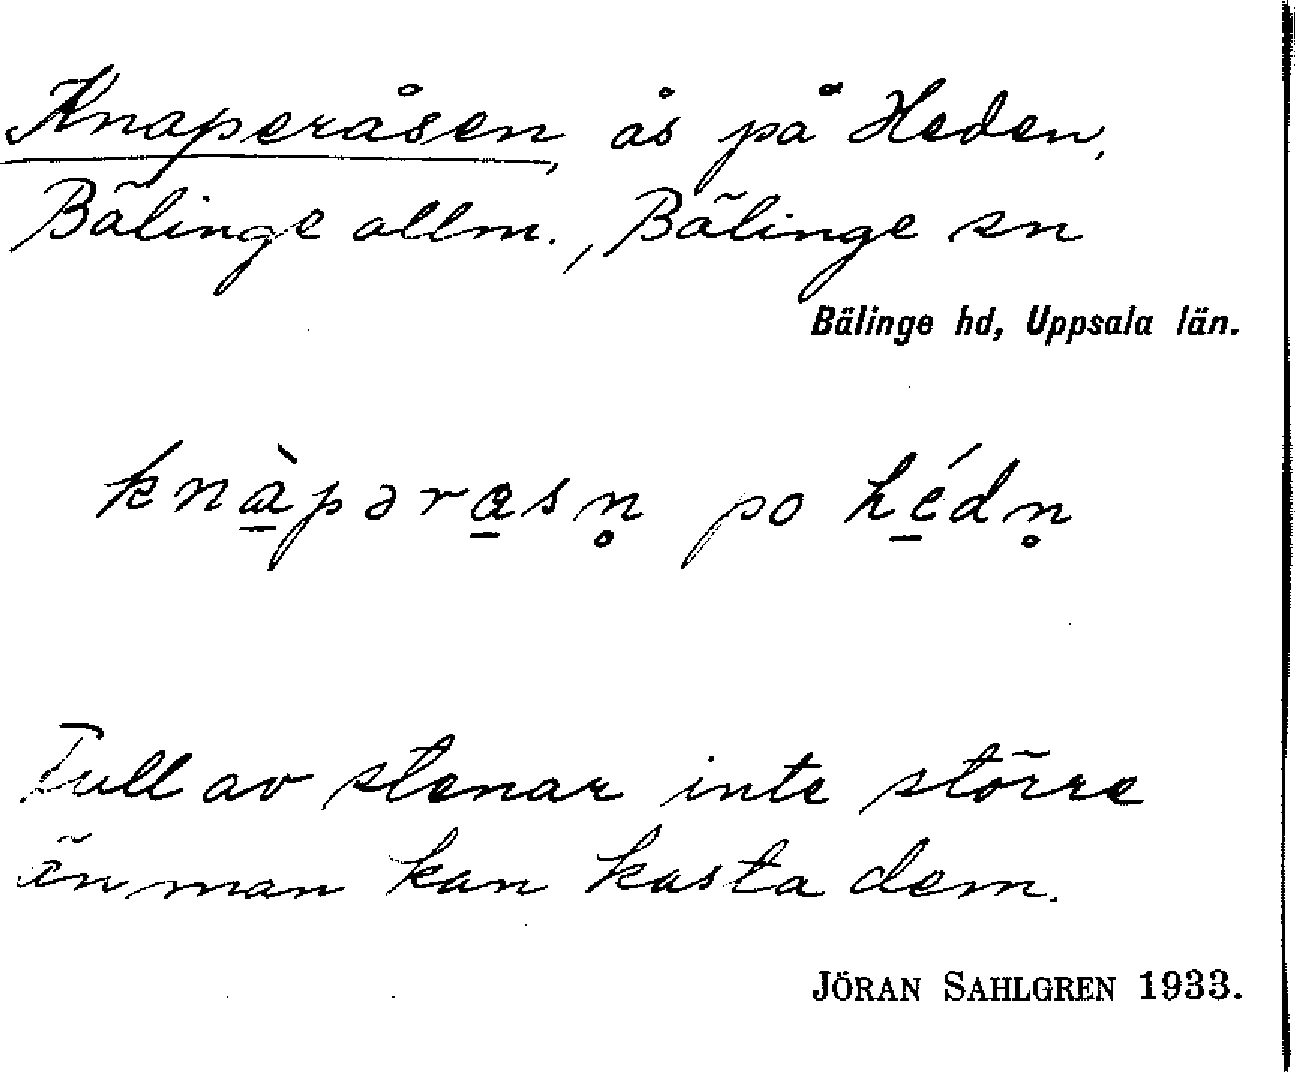 Knaperåsen, ås på Heden,
Bälinge allm., Bälinge sn
Bälinge hd, Uppsala län.
knа̱̀pəra̱sn̥ po hé̱dn̥
Full av stenar inte större
än man kan kasta dem.
JÖRAN SAHLGREN 1933.